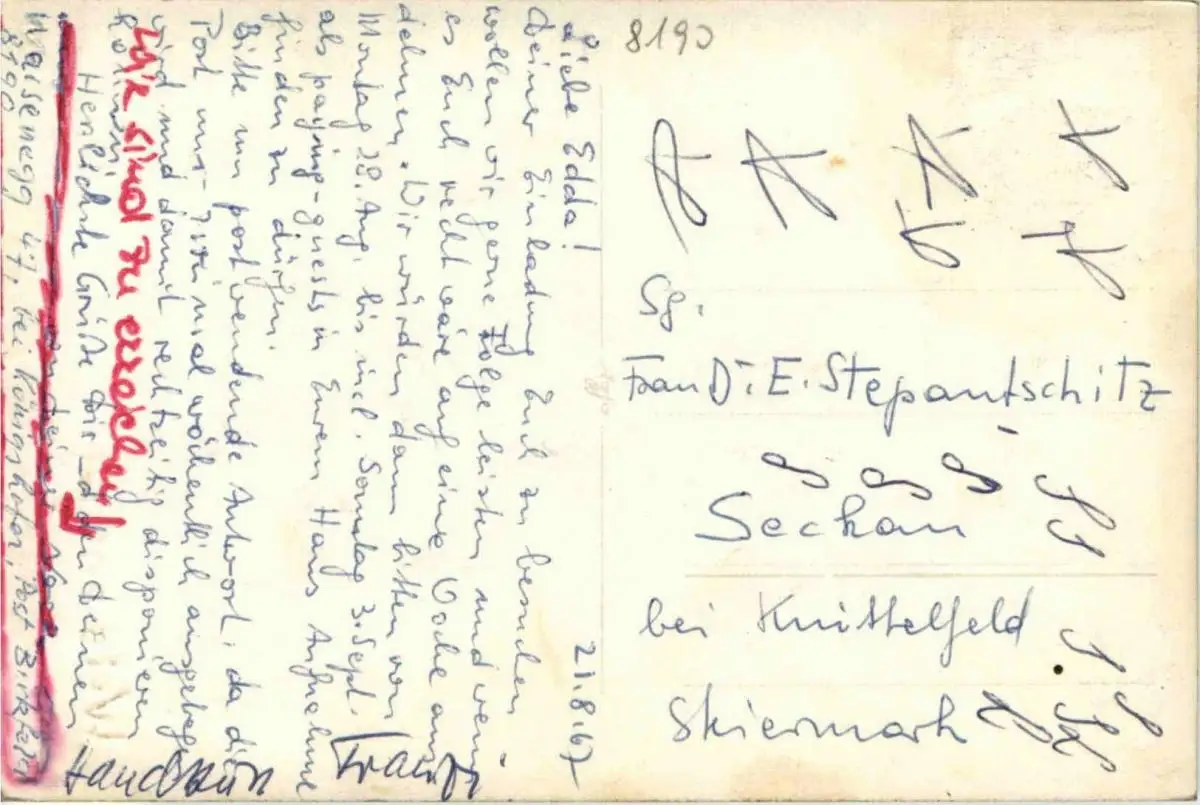 21.8.67
Liebe Edda!
Deiner Einladung Euch zu besuchen
wollen wir gerne Folge leisten und wenn
es Euch recht wäre auf eine Woche aus
dehnen. Wir würden dann bitten von
Montag 28. Aug. bis incl. Sonntag 3. Sept.
als paying-guests in Eurem Haus Aufnahme
finden zu dürfen.
Bitte um postwendende Antwort, da die
Post nur wöchentlich ausgetragen
wird und damit rechtzeitig disponieren
können.
Herzlichste Grüße Dir und Deinen
Wir sind zu erreichen
Waisenegg 47, bei Königshofer, Post Birkfeld
8190
8190
Sg.
Frau Dr. E. Stepantschitz
Seckau
bei Knittelfeld
Steiermark